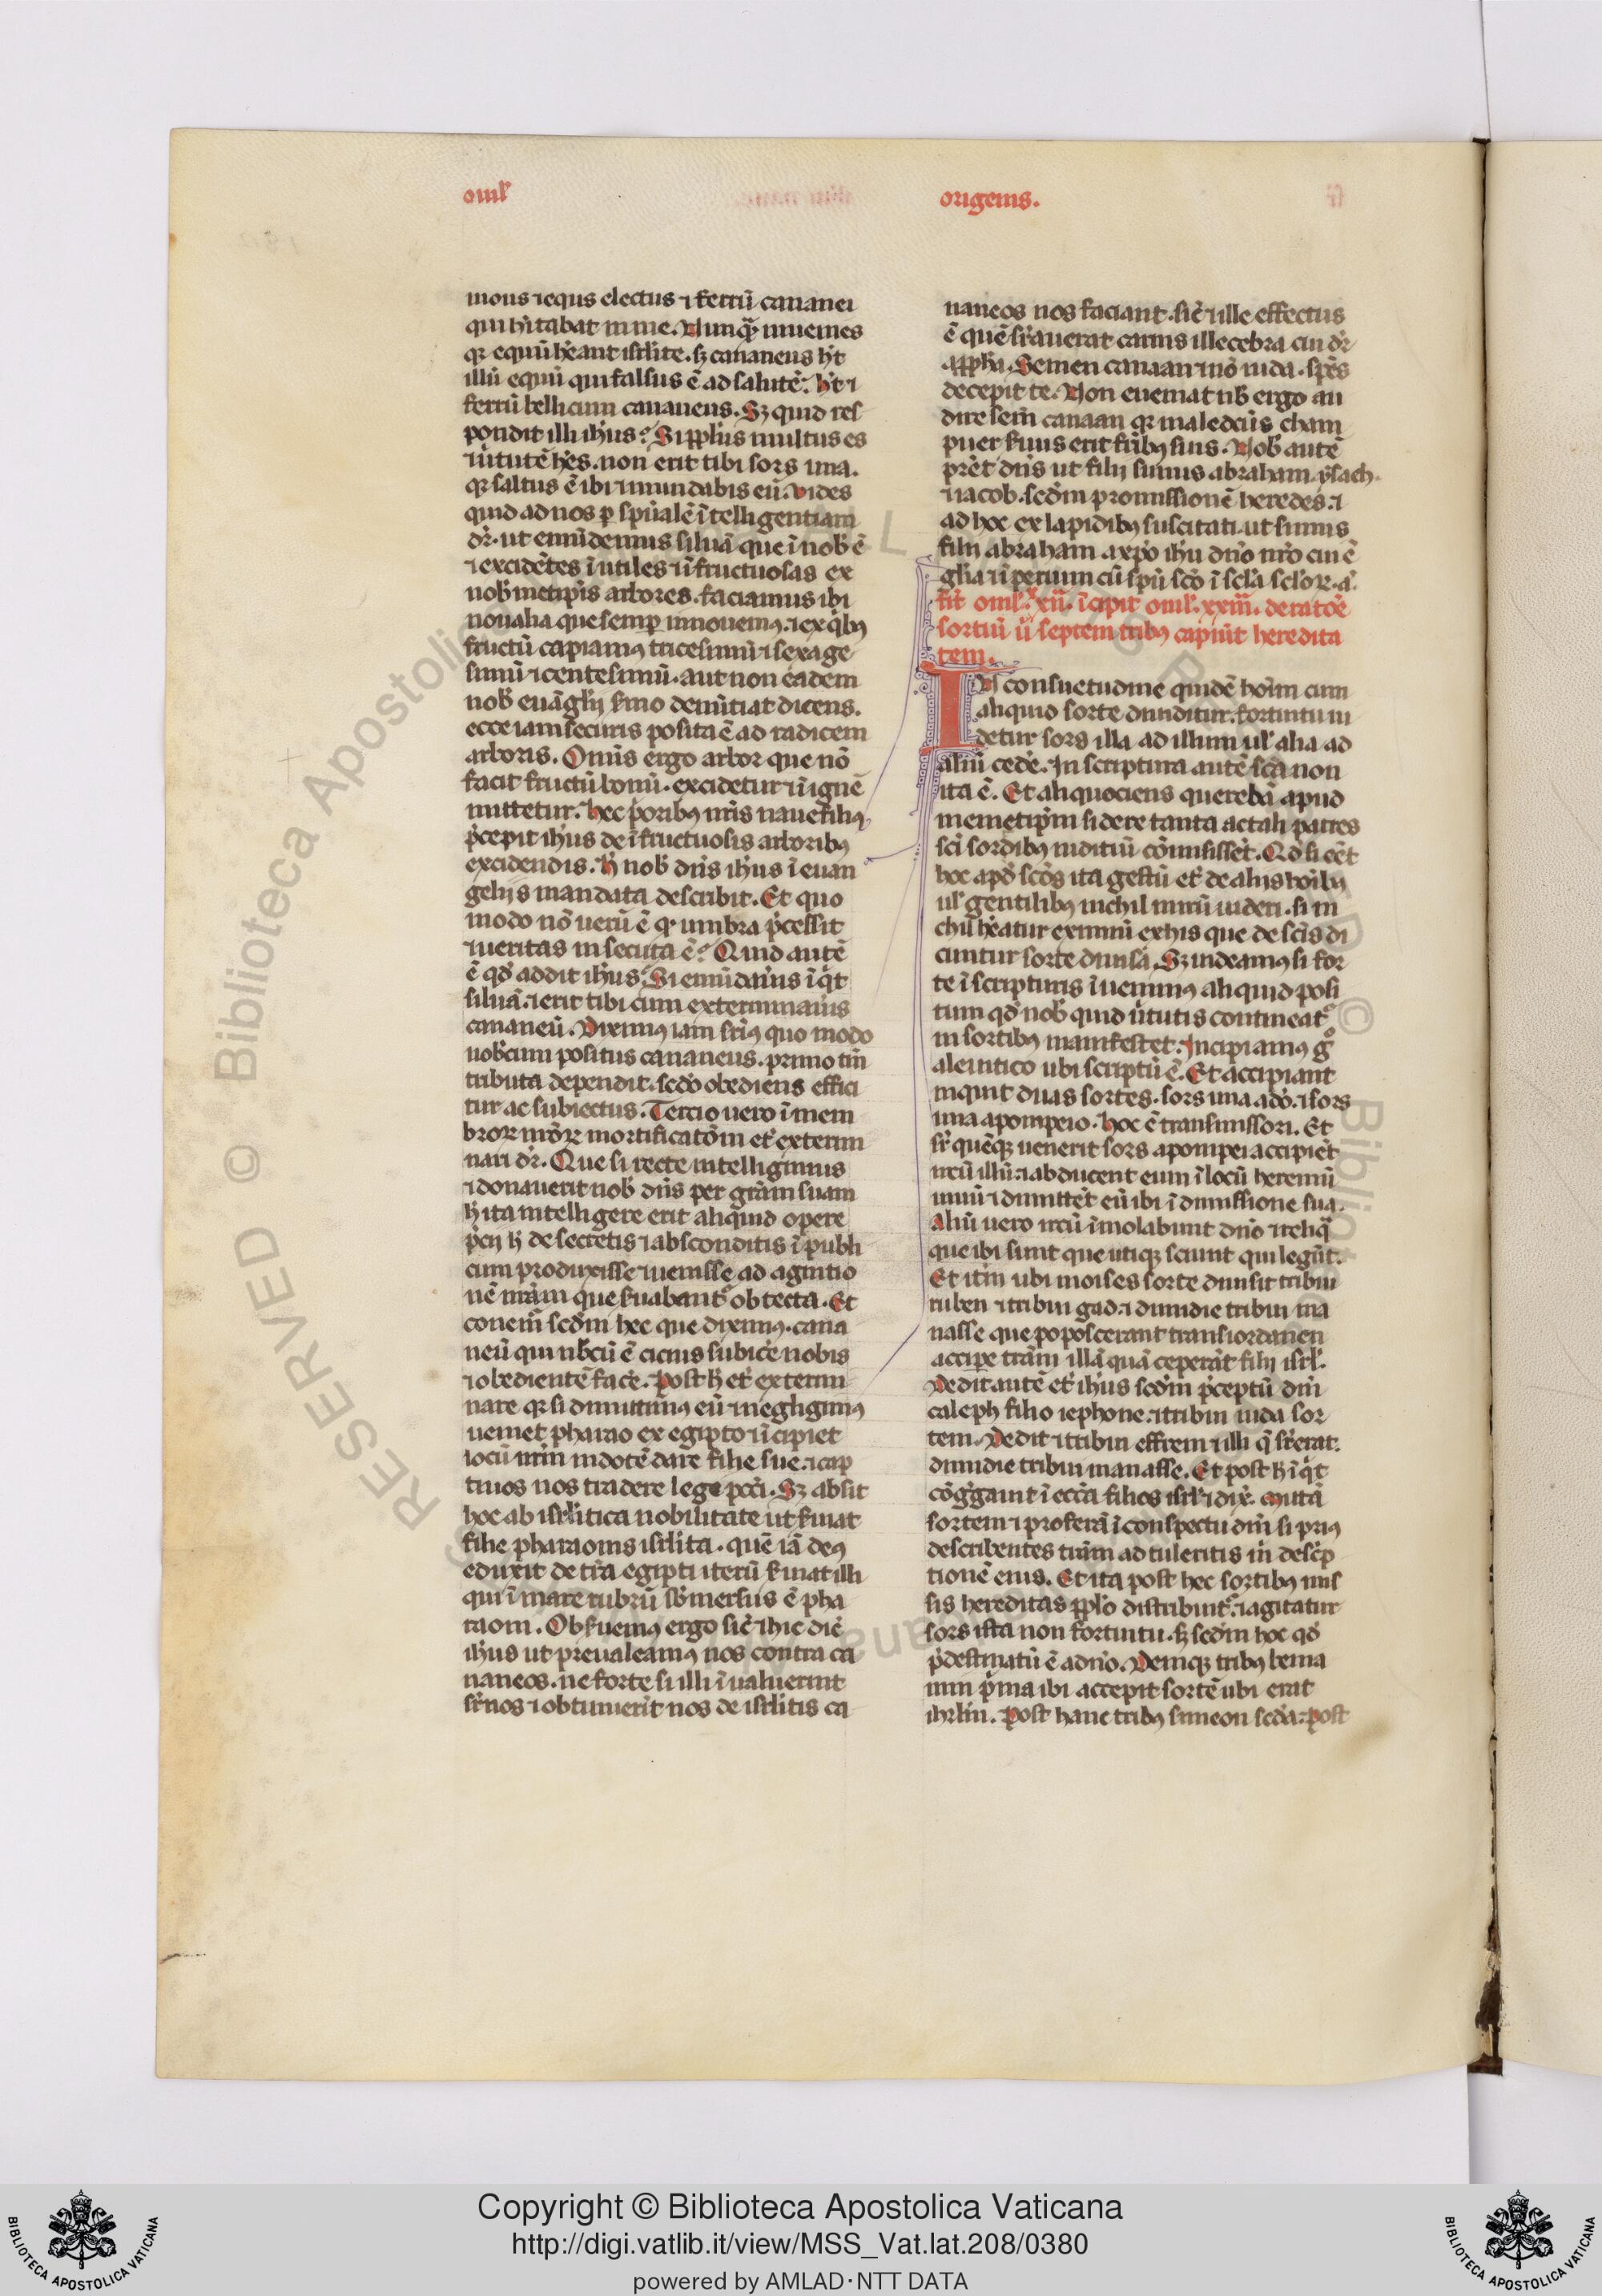 omĩl'
origenis.
mons ⁊ equs electus ⁊ ferrū cananei
qui h'itabat in me. Nunq̄ inuenies
qr equū hēant isrl'ite. sꝫ cananeus h't
illū equū qui falsus ē ad salutē. h't ⁊
ferrū bellicum cananeus. Sꝫ quid res
pondit illi ih'us? Si ppl's multus es
⁊ ũtutē hēs. non erit tibi sors una.
qr saltus ē ibi ⁊ mundabis eū. Vides
quid ad nos ꝑ spũalē ĩtelligentiam
dr̄. ut emūdemus siluā que ĩ nob̄ ē
⁊ excidētes ĩutiles ⁊ ĩfructuosas ex
nob̄metip̄is arbores. faciamus ibi
noualia que semꝑ innouemꝰ. ⁊ ex qͥbꝰ
fructū capiamꝰ tricesimū ⁊ sexage
simū ⁊ centesimū. aut non eadem
nob̄ euāglij s̓mo denūtiat dicens.
ecce iam securis posita ē ad radicem
arboris. Om̄is ergo arbor que nō
facit fructū bonū. excidetur ⁊ ĩ ignē
mittetur. hec p̓oribꝰ nr̄is naue filiꝰ
p̓cepit ih'us de ĩfructuosis arboribꝰ
excidendis. h̓ nob̄ dn̄s ih'us ĩ euan
gelijs mandata describit. Et quo
modo nō uerū ē qr umbra p̓cessit
⁊ ueritas insecuta ē? Quid autē
ē qd̓ addit ih'us? Si emūdau̓is ĩq̓t
siluā. ⁊ erit tibi cum exterminau̓is
cananeū. Diximꝰ iam sup̓iꝰ quo modo
nob̄cum positus cananeus. primo tm̄
tributa dependit. sed̓o obediens effici
tur ac subiectus. Tercio uero ĩ mem
broꝝ nr̄oꝝ mortificatōm et̓ extermi
nari dr̄. Que si recte intelligimus
⁊ donauerit nob̄ dn̄s per grām suam
h̓ ita intelligere erit aliquid opere
p̓cij h̓ de secretis ⁊ absconditis ĩ publi
cum produxisse ⁊ uenisse ad agnitio
nē nr̄am que s̓uabant̓ obtecta. Et
conem̃ sed̓m hec que diximꝰ. cana
neū qui nb̄cū ē cicius subice̓ nobis
⁊ obedientē face̓. Post h̓ et̓ extermi
nare qr si dimittimꝰ eū ⁊ negligimꝰ
ueniet pharao ex egipto ⁊ ĩcipiet
locū nr̄m in dotē dare filie sue. ⁊ cap
tiuos nos tradere lege pcc̄i. Sꝫ absit
hoc ab isrl'itica nobilitate ut s̓uiat
filie pharaonis isrl'ita. quē iā deꝰ
eduxit de tr̄a egipti iterū s̓uiat illi
qui ĩ mare rubrū sb̓mersus ē pha
raoni. Obs̓uemꝰ ergo sic̄ ⁊ hic dic̄
ih'us ut preualeamꝰ nos contra ca
naneos. ne forte si illi ĩualuerint
sr̄ nos ⁊ obtinuerīt nos de isrl'itis ca
naneos nos faciant. sic̄ ⁊ ille effectus
ē quē sr̄auerat carnis illecebra cui dr̄
a pph̄a. Semen canaan ⁊ nō iuda. sp̄es
decepit te. Non eueniat nb̄ ergo au
dire sem̄ canaan qr maledc̄us cham
puer s̓uus erit frībꝰ suis. Nob̄ autē
prēt dn̄s ut filij simus abraham. ysach.
⁊ iacob. sed̓m promissionē heredes. ⁊
ad hoc ex lapidibꝰ suscitati. ut simus
filij abraham. a xp̄o ih'u dn̄o nr̄o cui ē
gl'ia ⁊ ĩperium cū spū sc̄o ĩ sc̄la sc̄loꝝ. a̓.
fit̄ oml'. xxii. ĩcipit oml'. xxiii. de ratōe
sortiū ũ septem tribꝰ capiūt heredita
tem.
IN consuetudine quidē hoīm cum
aliquid sorte diuiditur. fortuitu ui
detur sors illa ad illum ul' alia ad
aliū cede̓. In scriptura autē sc̄a non
ita ē. Et aliquociens querebā apud
memetip̄m si dere tanta actali patres
sc̄i sordibꝰ iuditiū cōmisisset̄. Qd̓ si eēt
hoc apd̓ sc̄os ita gestū et̓ de alijs hoībꝰ
ul' gentilibꝰ nichil mirū uideri. si in
chil h̓eatur eximiū ex his que de sc̄is di
cuntur sorte diuisa. Sꝫ uideamꝰ si for
te ĩ scripturis ĩuenimꝰ aliquid posi
tum qd̓ nob̄ quid ũtutis contineat̓
in sortibꝰ manifestet. Incipiamꝰ gͦ
a leuitico ubi scriptū ē. Et accipiant
inquit duas sortes. sors una a d̓o. ⁊ sors
una apompeio. hoc ē transmissori. Et
sr̄ quēqꝫ uenerit sors apompei accipiēt
ircū illū. ⁊ abducent eum ĩ locū heremū
imiū ⁊ dimittēt eū ibi ĩ dimissione sua.
Aliū uero ircū ĩmolabunt dn̄o ⁊ reliq̄
que ibi sunt que utiqꝫ sciunt qui legūt.
Et itm̄ ubi moises sorte diuisit tribui
ruben ⁊ tribui gad. ⁊ dimidie tribui ma
nasse que poposcerant transiordanen
accipe tr̄am illā quā ceperāt filij isrl'.
Dedit autē et̓ ih'us sed̓m p̓ceptū dn̄i
caleph filio iephone. ⁊ tribui iuda sor
tem. Dedit ⁊ tribui effrem ⁊ illi q̄ sr̄erat.
dimidie tribui manasse. Et post h̓ ĩq̓t
cōg̓gauit ĩ ecc̄a filios isrl' ⁊ dix̄. mutā
sortem ⁊ proferā ĩ conspectu dn̄i si priꝰ
describentes tr̄am adtuleritis m̓ desc̓p
tionē eius. Et ita post hec sortibꝰ mis
sis hereditas ppl'o distribuit̓. ⁊ agitatur
sors ista non fortuitu. sꝫ sed̓m hoc qd̓
p̓destinatū ē a dn̄o. Deniqꝫ tribꝰ benia
min p̓ma ibi accepit sortē ubi erat
ihrl'm. Post hanc tribꝰ simeon sed̓a. post
Copyright © Biblioteca Apostolica Vaticana
http://digi.vatlib.it/view/MSS_Vat.lat.208/0380
powered by AMLAD·NTT DATA
BIBLIOTECA APOSTOLICA VATICANA
BIBLIOTECA APOSTOLICA VATICANA